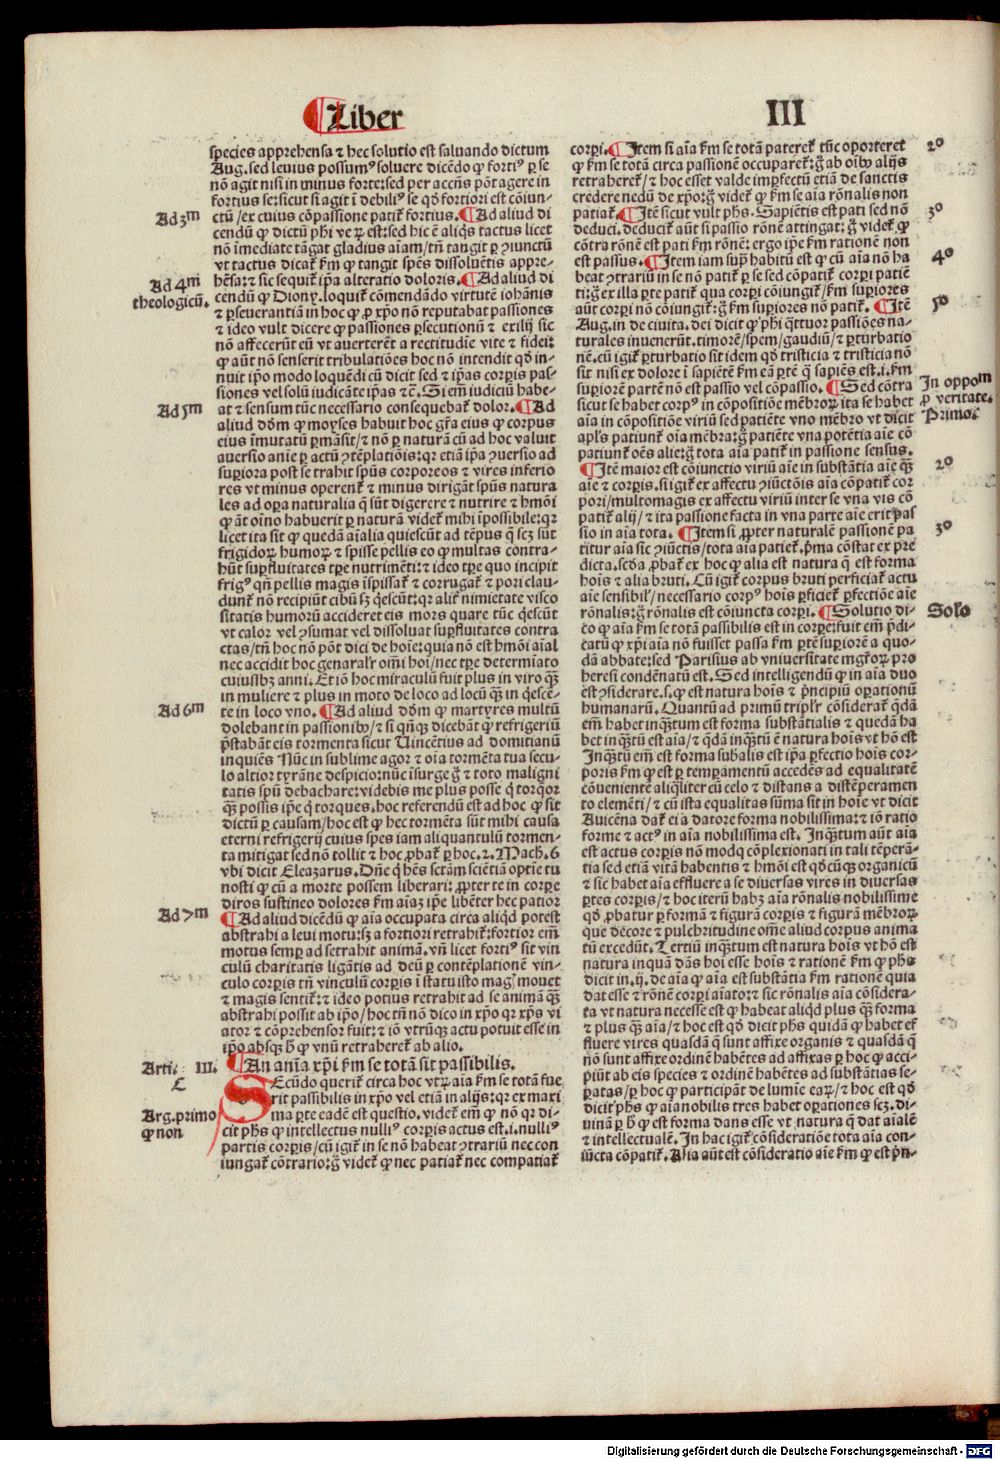 ¶Liber
III
species apprehensa ⁊ hec solutio est saluando dictum
Aug. sed leuius possumꝰ soluere dicēdo ꝙ fortiꝰ ꝑ se
nō agit nisi in minus forte: sed per accñs pōt agere in
fortius se: sicut si agit ī debiliꝰ se qď fortiori est cōiun-
Ad 3m
ctū / ex cuius cōpassione patit̄ fortius. ¶Ad aliud di
cendū ꝙ dictū phi ve ꝝ est: sed hic ē aliq̄s tactus licet
nō īmediate tāgat gladius aīam / tñ tangit ꝑ ꝯiunctū
vt tactus dicat̄ ẜm ꝙ tangit spēs dissoluētis appre-
Ad 4m
theologicū.
hēsa: ⁊ sic sequit̄ ip̄a alteratio doloris. ¶Ad aliud di
cendū ꝙ Diony. loquit̄ cōmendādo virtutē iohānis
⁊ ꝑseuerantiā in hoc ꝙ ꝓ xp̄o nō reputabat passiones
⁊ ideo vult dicere ꝙ passiones ꝑsecutionū ⁊ exilij sic
nō affecerūt eū vt auerterēt a rectitudīe vite ⁊ fidei:
ꝙ aūt nō senserit tribulatiōes hoc nō intendit qď in-
nuit ip̄o modo loquēdi cū dicit sed ⁊ ip̄as corꝑis pas-
siones vel solū iudicāte ip̄as ⁊ c̄. Si em̄ iudiciū habe-
Ad 5m
at ⁊ sensum tūc necessario consequebat̄ dolor. ¶Ad
aliud dōm ꝙ moyses habuit hoc gr̄a eius ꝙ corpus
eius īmutatū ꝑmāsit / ⁊ nō ꝑ naturā cū ad hoc valuit
auersio anīe ꝑ actū ꝯtēplatiōis: qꝛ etiā ip̄a ꝯuersio ad
suꝑiora post se trahit spūs corporeos ⁊ vires inferio
res vt minus operent̄ ⁊ minus dirigāt spūs natura
les ad oꝑa naturalia q̄ sūt digerere ⁊ nutrire ⁊ hmōi
ꝙ āt oīno habuerit ꝑ naturā videt̄ mihi īpossibile: qꝛ
licet ita sit ꝙ quedā aīalia quiescūt ad tēpus q̄ scꝫ sūt
frigidoꝝ humoꝝ ⁊ spisse pellis eo ꝙ multas contra-
hūt suꝑfluitates tꝑe nutrimēti: ⁊ ideo tꝑe quo incipit
frigꝰ qn̄ pellis magis īspissat̄ ⁊ corrugat̄ ⁊ pori clau-
dunt̄ nō recipiūt cibū sꝫ q̄escūt: qꝛ alit̄ nimietate visco
sitatis humorū accideret eis mors quare tūc q̄escūt
vt calor vel ꝯsumat vel dissoluat suꝑfluitates contra
ctas / tñ hoc nō pōt dici de hoīe: quia nō est hmōi aīal
nec accidit hoc genaral'r om̄i hoī / nec tꝑe determīato
cuiuslibꝫ anni. Et iō hoc miraculū fuit plus in viro q̄ꝫ
in muliere ⁊ plus in moto de loco ad locū q̄ꝫ in q̄escē-
Ad 6m
te in loco vno. ¶Ad aliud dōm ꝙ martyres multū
dolebant in passionibꝰ / ⁊ si qn̄qꝫ dicebāt ꝙ refrigeriū
p̄stabāt eis tormenta sicut Uincētius ad domitianū
inquiēs Nūc in sublime agor ⁊ oīa tormēta tua secu-
lo altior tyrāne despicio: nūc īsurge g̊ ⁊ toto maligni
tatis spū debachare: videbis me plus posse q̄ torqꝛor
q̄ꝫ possis ip̄e q̄ torques. hoc referendū est ad hoc ꝙ sit
dictū ꝑ causam / hoc est ꝙ hec tormēta sūt mihi causa
eterni refrigerij cuius spes iam aliquantulū tormen-
ta mitigat sed nō tollit ⁊ hoc ꝓbat̄ ꝑ hoc. 2. Mach. 6
vbi dicit Eleazarus. Dn̄e q̄ hēs sctām sciētiā optīe tu
nosti ꝙ cū a morte possem liberari: ꝓpter te in corꝑe
diros sustineo dolores ẜm aīaꝫ ip̄e libēter hec patior
Ad 7m
¶Ad aliud dicēdū ꝙ aīa occupata circa aliq̄d potest
abstrahi a leui motu: sꝫ a fortiori retrahit̄: fortior em̄
motus semꝑ ad se trahit animā. vñ licet fortiꝰ sit vin
culū charitatis ligātis ad deū ꝑ contēplationē vin-
culo corꝑis tñ vinculū corꝑis ī statu isto magꝭ mouet
⁊ magis sentit̄: ⁊ ideo potius retrahit ad se animā q̄ꝫ
abstrahi possit ab ip̄o / hoc tñ nō dico in xp̄o qꝛ xp̄s vi
ator ⁊ cōprehensor fuit: ⁊ iō vtrūqꝫ actu potuit esse in
ip̄o absqꝫ h̄ ꝙ vnū retraheret̄ ab alio.
Arti. III.
¶An anīa xp̄i ẜm se totā sit passibilis.
Secūdo querit̄ circa hoc vtꝝ aīa ẜm se totā fue
rit passibilis in xp̄o vel etiā in alijs: qꝛ ex maxi
Arg. primo
ꝙ non
ma ꝑte eadē est questio. videt̄ em̄ ꝙ nō qꝛ di-
cit phs ꝙ intellectus nulliꝰ corꝑis actus est .i. nulliꝰ
partis corꝑis / cū igit̄ in se nō habeat ꝯtrariū nec con
iungat̄ cōtrario: g̊ videt̄ ꝙ nec patiat̄ nec compatiat̄
corꝑi. ¶Item si aīa ẜm se totā pateret̄ tūc oporteret
2o
ꝙ ẜm se totā circa passionē occuparet̄: g̊ ab oībꝰ alijs
retraheret̄ / ⁊ hoc esset valde imꝑfectū etiā de sanctis
credere nedū de xp̄o: g̊ videt̄ ꝙ ẜm se aīa rōnalis non
patiat̄. ¶Itē sicut vult phs. Sapiētis est pati sed nō
3o
deduci. deducit̄ aūt si passio rōnē attingat: g̊ videt̄ ꝙ
cōtra rōnē est pati ẜm rōnē: ergo ip̄e ẜm rationē non
est passus. ¶Item iam sup̄ habitū est ꝙ cū aīa nō ha
4o
beat ꝯtrariū in se nō patit̄ ꝑ se sed cōpatit̄ corꝑi patiē
ti: g̊ ex illa ꝑte patit̄ qua corꝑi cōiungit̄ / ẜm suꝑiores
aūt corꝑi nō cōiungit̄: g̊ ẜm suꝑiores nō patit̄. ¶Itē
5o
Aug. in de ciuita. dei dicit ꝙ phi q̄ttuor passiōes na-
turales inuenerūt. timorē / spem / gaudiū / ⁊ ꝑturbatio
nē. cū igit̄ ꝑturbatio sit idem qď tristicia ⁊ tristicia nō
sit nisi ex dolore ī sapiētē ẜm eā ꝑtē q̄ sapiēs est .i. ẜm
suꝑiorē partē nō est passio vel cōpassio. ¶Sed cōtra
In oppom
ꝓ veritate.
Primo.
sicut se habet corpꝰ in cōpositiōe mēbroꝝ ita se habet
aīa in cōpositiōe viriū sed patiēte vno mēbro vt dicit
apl's patiunt̄ oīa mēbra: g̊ patiēte vna potētia aīe cō
patiunt̄ oēs alie: g̊ tota aīa patit̄ in passione sensus.
¶Itē maior est cōiunctio viriū aīe in substātia aīe q̄ꝫ
2o
aīe ⁊ corꝑis. si igit̄ ex affectu ꝯiūctōis aīa cōpatit̄ cor
pori / multomagis ex affectu viriū inter se vna vis cō
patit̄ alij / ⁊ ita passione facta in vna parte aīe erit pas
sio in aīa tota. ¶Item si ꝓpter naturalē passionē pa
3o
titur aīa sic ꝯiūctis / tota aīa patiet̄. p̄ma cōstat ex pre
dicta. scďa ꝓbat̄ ex hoc ꝙ alia est natura q̄ est forma
hoīs ⁊ alia bruti. Cū igit̄ corpus bruti perficiat̄ actu
aīe sensibil' / necessario corpꝰ hoīs ꝑficiet̄ ꝑfectiōe aīe
rōnalis: g̊ rōnalis est cōiuncta corꝑi. ¶Solutio di-
Solo
cō ꝙ aīa ẜm se totā passibilis est in corꝑe: fuit em̄ p̄di-
catū ꝙ xp̄i aīa nō fuisset passa ẜm ꝑtē suꝑiorē a quo-
dā abbate: sed Parisius ab vniuersitate mgr̄oꝝ pro
heresi condēnatū est. Sed intelligendū ꝙ in aīa duo
est ꝯsiderare. s. ꝙ est natura hoīs ⁊ p̄ncipiū oꝑationū
humanarū. Quantū ad primū tripl'r cōsiderat̄ q̄dā
em̄ habet inq̄ꝫtum est forma substātialis ⁊ quedā ha
bet inq̄ꝫtū est aīa / ⁊ q̄dā inq̄ꝫtū ē natura hoīs vt hō est
Inq̄ꝫtū em̄ est forma subalis est ip̄a ꝑfectio hoīs cor-
poris ẜm ꝙ est ꝑ temꝑamentū accedēs ad equalitatē
cōuenientē aliq̄liter cū celo ⁊ distans a distēperamen
to elemēti / ⁊ cū ista equalitas sūma sit in hoīe vt dicit
Auicēna dat̄ ei a datore forma nobilissima: ⁊ iō ratio
forme ⁊ actꝰ in aīa nobilissima est. Inq̄ꝫtum aūt aīa
est actus corꝑis nō modꝫ cōplexionati in tali tēperā-
tia sed etiā vitā habentis ⁊ hmōi est qď cūqꝫ organicū
⁊ sic habet aīa effluere a se diuersas vires in diuersas
ꝑtes corꝑis / ⁊ hoc iterū habꝫ aīa rōnalis nobilissime
qď ꝓbatur ꝑ formā ⁊ figurā corꝑis ⁊ figurā mēbroꝝ
que decore ⁊ pulchritudine om̄e aliud corpus anima
tū excedūt. Tertiū inq̄ꝫtum est natura hoīs vt hō est
natura inquā dās hoī esse hoīs ⁊ rationē ẜm ꝙ phs
dicit in .ij. de aīa ꝙ aīa est substātia ẜm rationē quia
dat esse ⁊ rōnē corꝑi aīator: ⁊ sic rōnalis aīa cōsidera-
ta vt natura necesse est ꝙ habeat aliq̄d plus q̄ꝫ forma
⁊ plus q̄ꝫ aīa / ⁊ hoc est qď dicit phs quidā ꝙ habet ef
fluere vires quasdā q̄ sunt affixe organis ⁊ quasdā q̄
nō sunt affixe ordinē habētes ad affixas ꝑ hoc ꝙ acci-
piūt ab eis species ⁊ ordinē habētes ad substātias se-
ꝑatas / ꝑ hoc ꝙ participāt de lumīe eaꝝ / ⁊ hoc est qď
dicit phs ꝙ aīa nobilis tres habet oꝑationes scꝫ. di-
uinā ꝑ h̄ ꝙ est forma dans esse vt natura q̄ dat aīalē
⁊ intellectualē. In hac igit̄ cōsideratiōe tota aīa con-
iūcta cōpatit̄. Alia aūt est cōsideratio aīe ẜm ꝙ est p̄n-
Digitalisierung gefördert durch die Deutsche Forschungsgemeinschaft - DFG